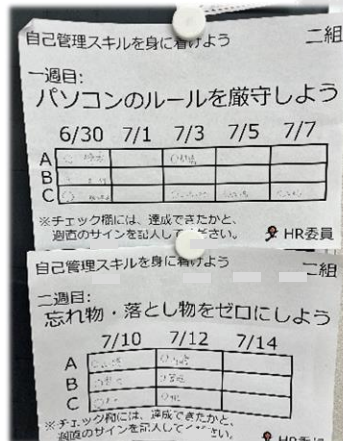 自己管理スキルを身に着けよう 二組
一週目:
パソコンのルールを厳守しよう
6/30 7/1 7/3 7/5 7/7
A
B
C
※チェック欄には、達成できたかと、
週直のサインを記入してください。
HR委員
自己管理スキルを身に着けよう 二組
二週目:
忘れ物・落とし物をゼロにしよう
7/10 7/12 7/14
A
B
C
※チェック欄には、達成できたかと、
週直のサインを記入して
さい。